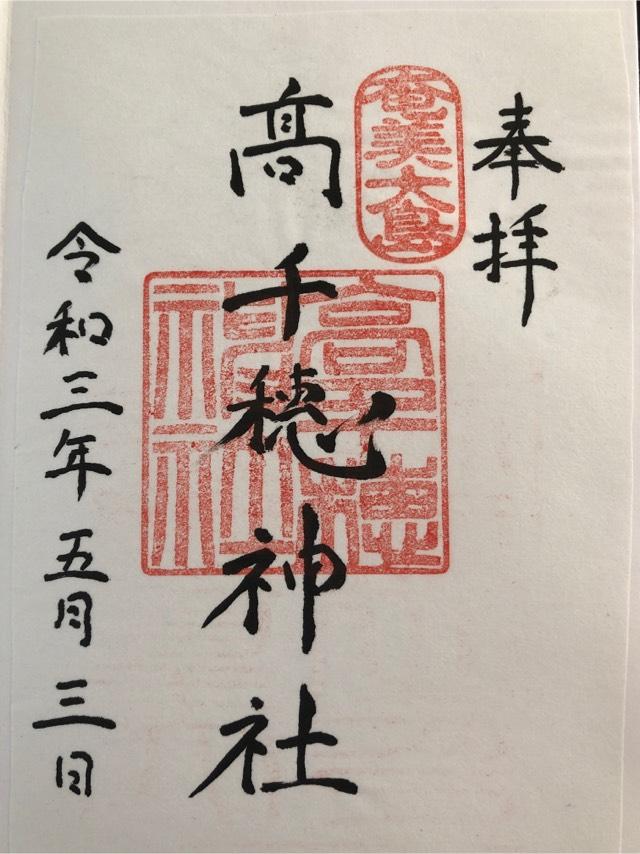 奉拝
奄美大島
髙千穂神社
高千穂神社
令和三年五月三日